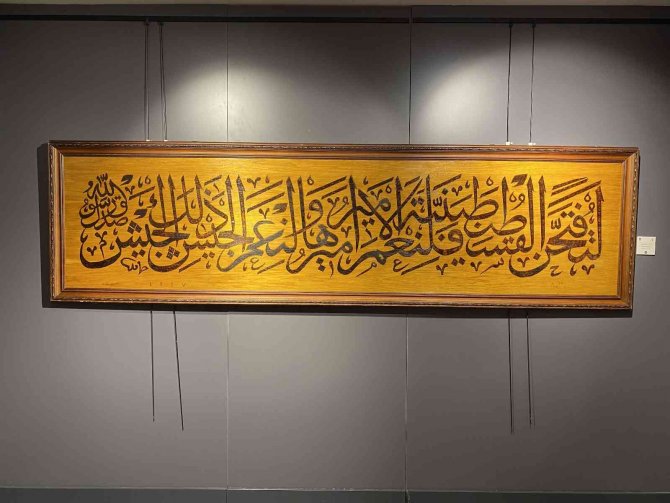 لتفتحن القسطنطينية فلنعم الامير اميرها ولنعم الجيش ذلك الجيش صدق رسول الله